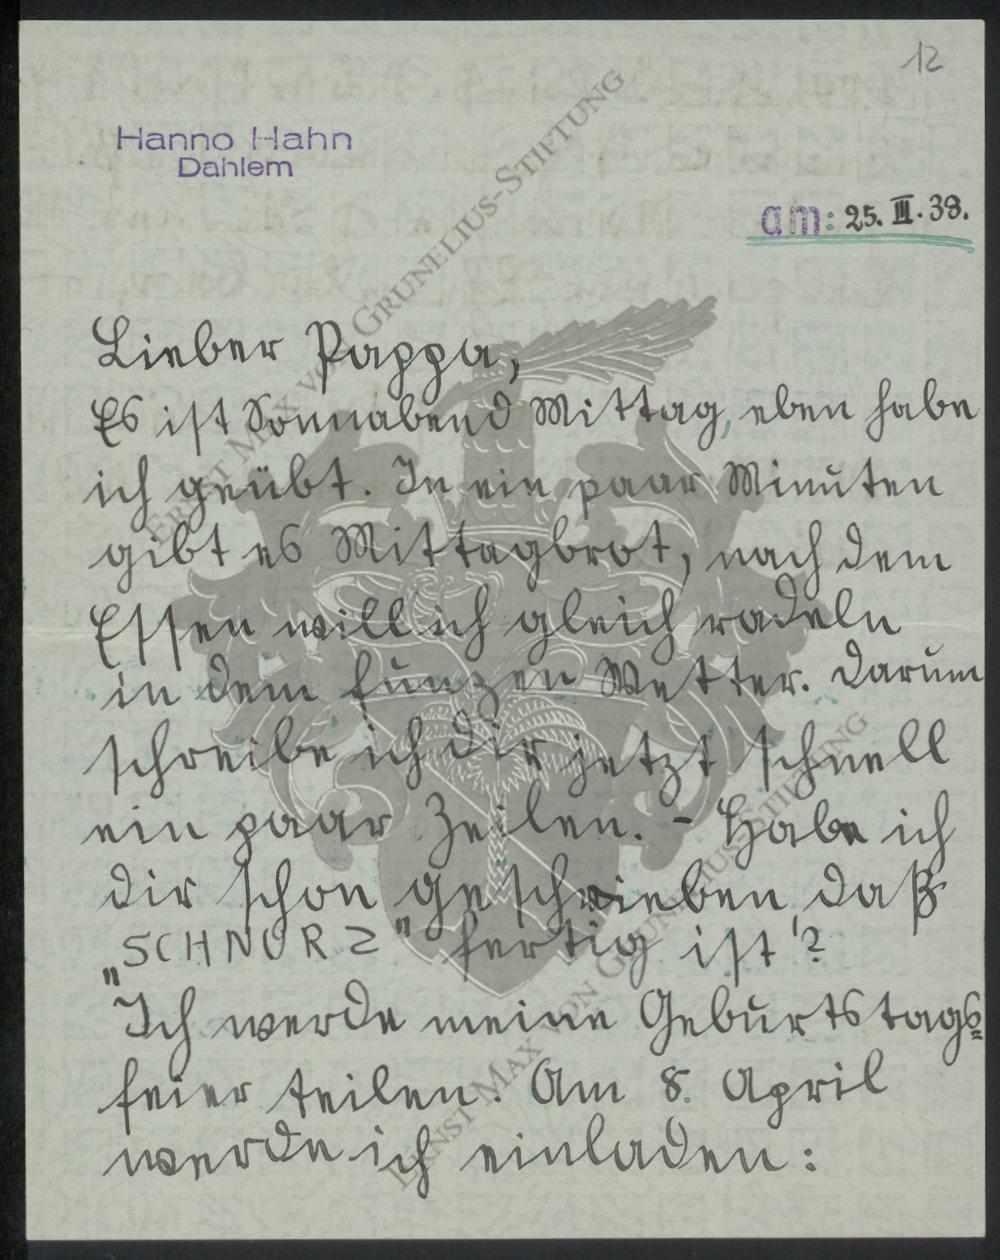 12
Hanno Hahn
Dahlem
am: 25. III. 39.
Lieber Pappa,
Es ist Sonnabend Mittag, eben habe
ich geübt. In ein paar Minuten
gibt es Mittagbrot, nach dem
Essen will ich gleich radeln
in dem funzen Wetter. Darum
schreibe ich dir jetzt schnell
ein paar Zeilen. – Habe ich
dir schon geschrieben, daß
„SCHNURZ" fertig ist?
Ich werde meine Geburtstags=
feier teilen. Am 8. April
werde ich einladen:
ERNST MAX VON GRUNELIUS-STIFTUNG
ERNST MAX VON GRUNELIUS-STIFTUNG